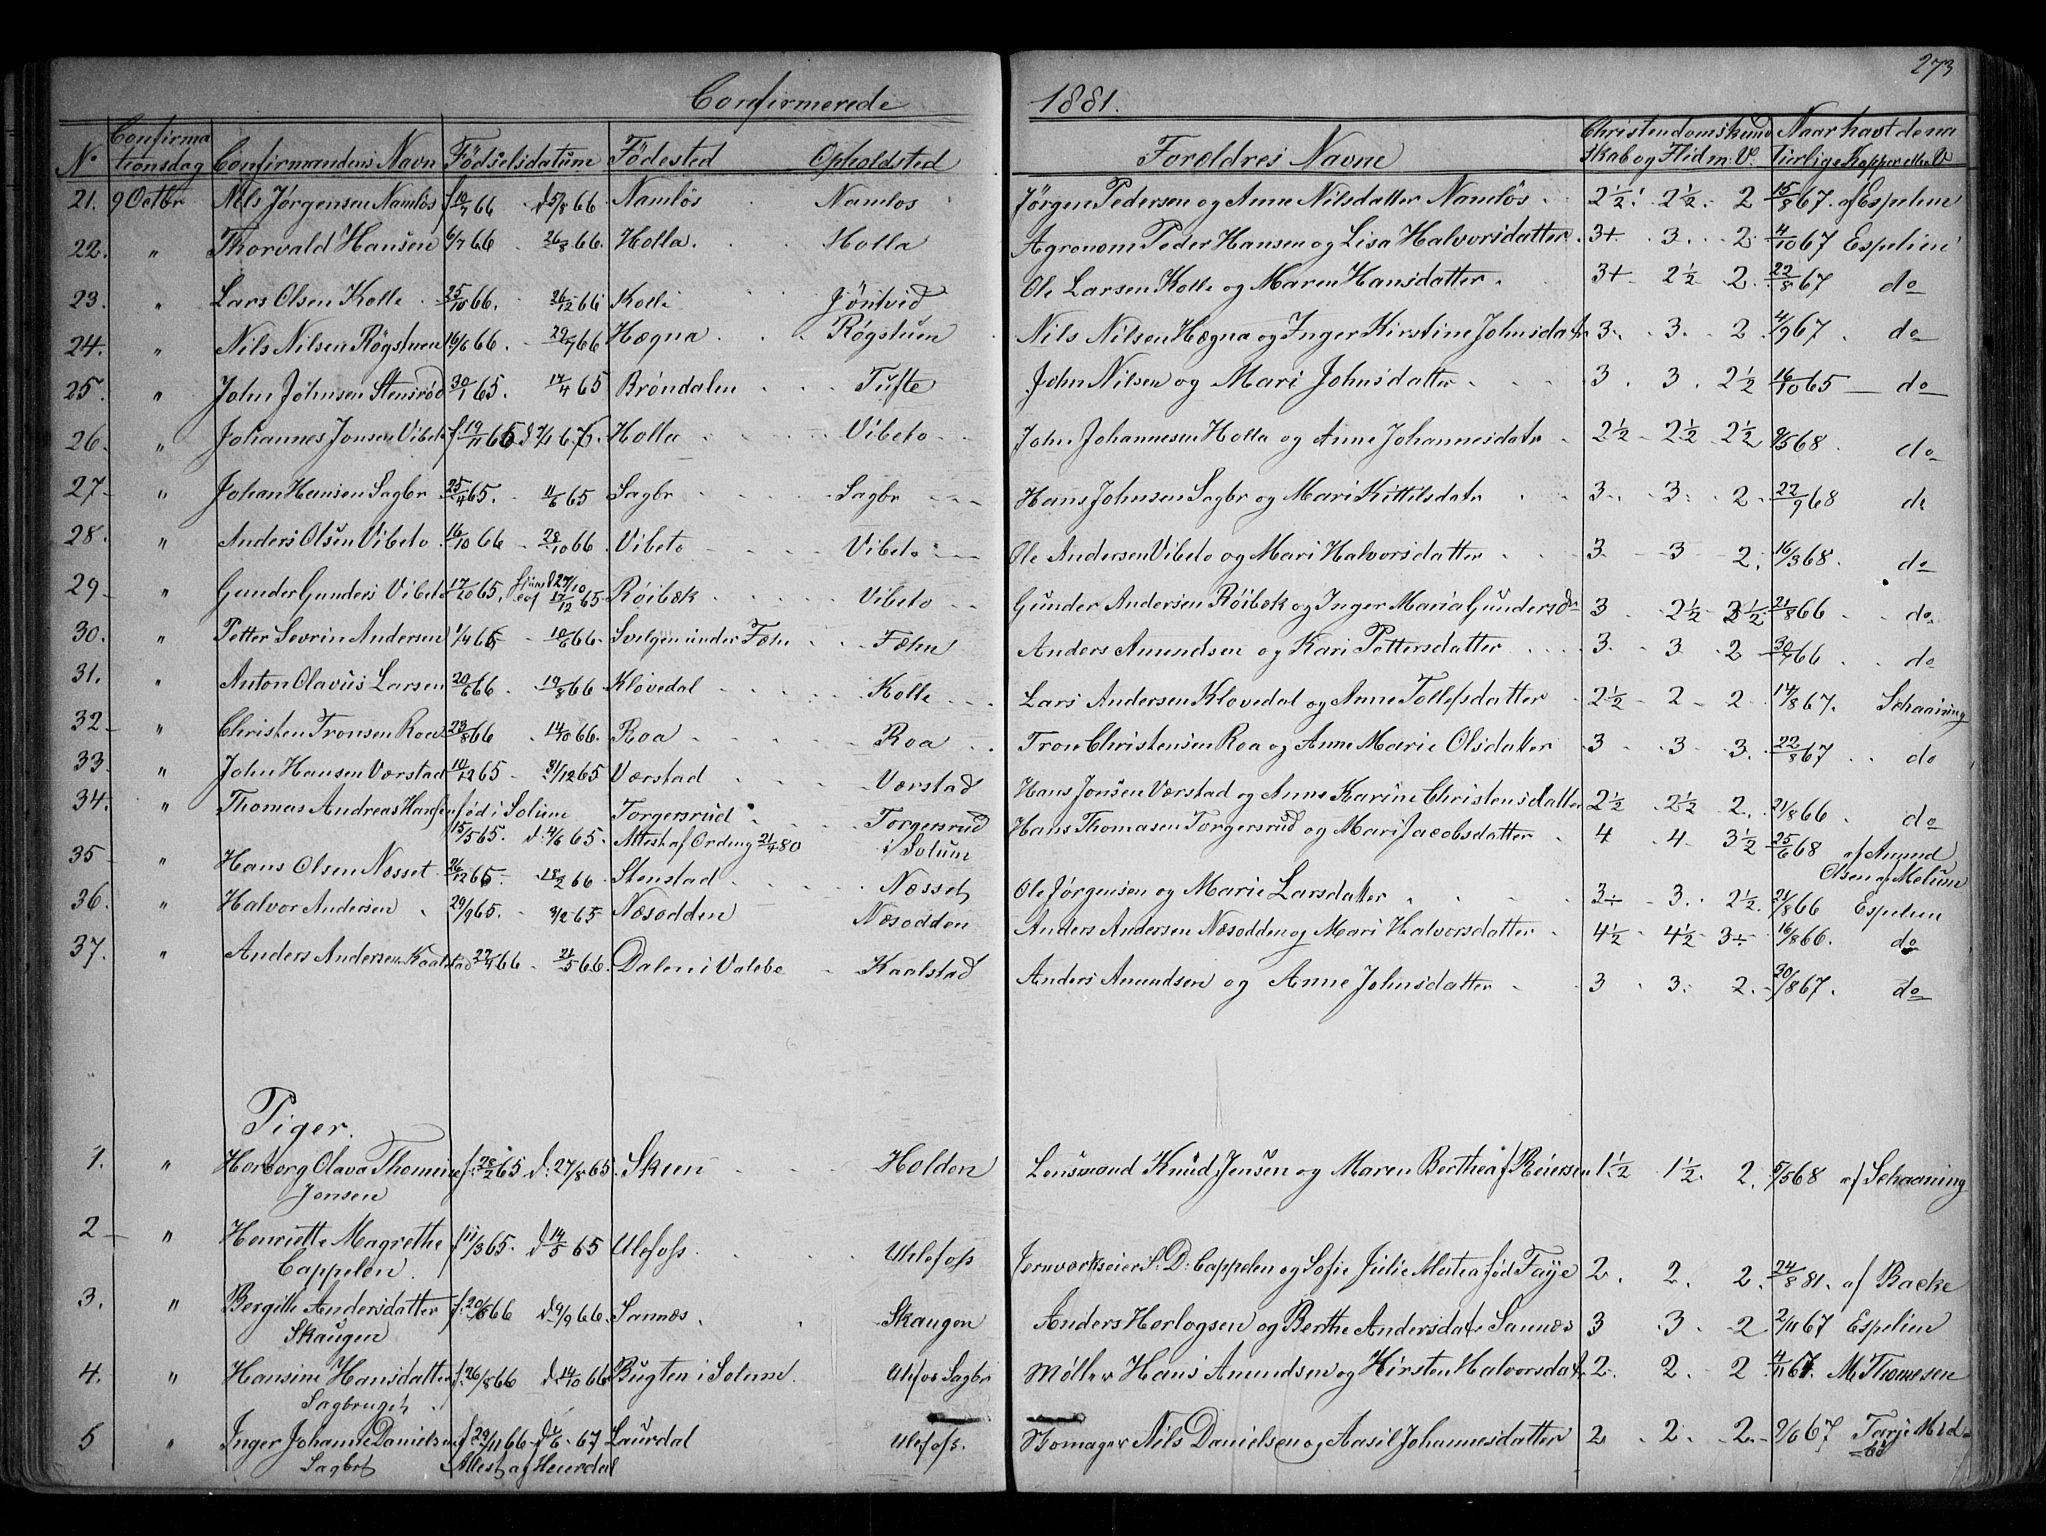 273
Confirmerede 1881.
No Confirmationsdag Confirmandens Navn Födselsdatum Födested Opholdsted Forældres Navne Christendomskundskab og Flid m: V: Naar havt de naturlige Kopper eller V
21. 9 Octbr Nils Jörgensen Namlös f 10/7 66 d 5/8 66 Namlös Namlos Jörgen Pedersen og Anne Nilsdatter Namlös 2½ 2½ 2 15/8 67 af Espelin
22. " Thorvald Hansen 6/7 66 26/8 66 Holla Holla Agronom Peder Hansen og Lisa Halvorsdatter 3+ 3 2 4/10 67 Espelin
23. " Lars Olsen Kolle 25/10 66. 26/12 66 Kolle Jöntvid Ole Larsen Kolle og Maren Hansdatter 3+ 2½ 2 22/8 67 do
24. " Nils Nilsen Rögstuen 16/6 66. 29/7 66 Hægna Rögstuen Nils Nilsen Hægna og Inger Kirstine Johnsdatr 3 3 2 4/9 67 do
25. " John Johnsen Stensrød 30/1 65. 17/4 65 Bröndalen Tufte John Nilsen og Mari Johnsdatter 3 3 2½ 16/10 65 do
26 " Johannes Jonsen Vibeto f 19/11 Holla Vibeto John Johannesen Holla og Anne Johannesdatr 2½ 2½ 2½ 9/5 68 do
27 " Johan Hansen Sagbr 25/4 65. 11/6 65 Sagbr Sagbr Hans Johnsen Sagbr og Mari Kittilsdatr 3 3 2 22/9 68 do
28. " Anders Olsen Vibeto 16/10 66 28/10 66 Vibeto Vibeto Ole Andersen Vibeto og Mari Halvorsdatter 3 3 2. 16/3 68. do
29 " Gunder Gunders Vibeto 17/10 65. d 27/10 17/12 65 Röibæk Vibeto Gunder Andersen Röibæk og Inger Maria Gundersdr 3 2½ 3½ 21/8 66 do
30. " Petter Sevrin Andersen 1/4 66 10/6 66 Svelgen under Fæhn Fæhn Anders Amundsen og Kari Pettersdatter 3 3 2 30/7 66 do
31. " Anton Olavus Larsen 20/6 66 19/8 66 Klovedal Kolle Lars Andersen Klovedal og Anne Tollefsdatter 2½ 2 2 14/8 67. Schaaning
32 " Christen Tronsen Roa 23/8 66 14/10 66. Roa Roa Tron Christensen Roa og Anne Marie Olsdatter 3 3 3. 22/8 67 do
33. " John Hansen Værstad 10/12 65 31/12 65 Værstad Værstad Hans Jonsen Værstad og Anne Karine Christensdatter 2½ 2½ 2. 21/8 66 do
34. " Thomas Andreas Hansen född i Solum 15/5 65. d. 4/6 65. Torgersrud Attest af Ording 21/4 80 Torgersrud i Solum Hans Thomasen Torgersrud og Mari Jacobsdatter 4 4 3½ 25/6 68 af Amund Olsen af Melum
35 " Hans Olsen Næsset 26/12 65 18/2 66 Stenstad Næsset Ole Jörgensen og Marie Larsdatter 3÷ 3. 2½. 21/8 66 Espelin
36. " Halvor Andersen 29/9 65. 3/2 65 Næsodden Næsodden Anders Andersen Næsodden og Mari Halvorsdatter 4½ 4½ 3÷ 16/8 66. do
37. " Anders Andersen Kaalstad 27/4 66 21/5 66 Dalen i Valebø Kaalstad Anders Amundsen og Anne Johnsdatter 3 3. 2 30/8 67. do
Piger.
1. " Horborg Olava Thomine Jonsen f. 28/2 65 d: 27/8 65. Skien Holden Lensmand Knud Jensen og Maren Berthea f Reiersen 1½ 1½ 2. 5/5 68 af Schaaning
2 " Henriette Magrethe Cappelen f 11/3 65. d 14/5 65 Ulefoss Uhlefoss Jernværkseier S. D: Cappelen og Sofie Julie Matea född Faye 2. 2. 2. 24/8 81. af Backe
3. " Bergitte Andersdatter Skaugen f. 20/6 66 d 9/9 66. Sannæs Skaugen Anders Horlogsen og Berthe Andersdatr Sannæs 3 3. 2 2/11 67 Espelin
4. " Hansine Hansdatter Sagbruget f. 26/8 66 d. 14/10 66 Bugten i Solum. Ulefos Sagbr Møller Hans Amundsen og Kirsten Halvorsdatr 2. 2. 2 4/11 67. M. Thomesen
5 " Inger Johanne Danielsen Sagbrt f 29/11 66 67 Attest af Heierdal Laurdal Ulefoss. Skomager Nils Danielsen og Aasil Johannesdatter 2 2. 2. 2/6 67 Tarje